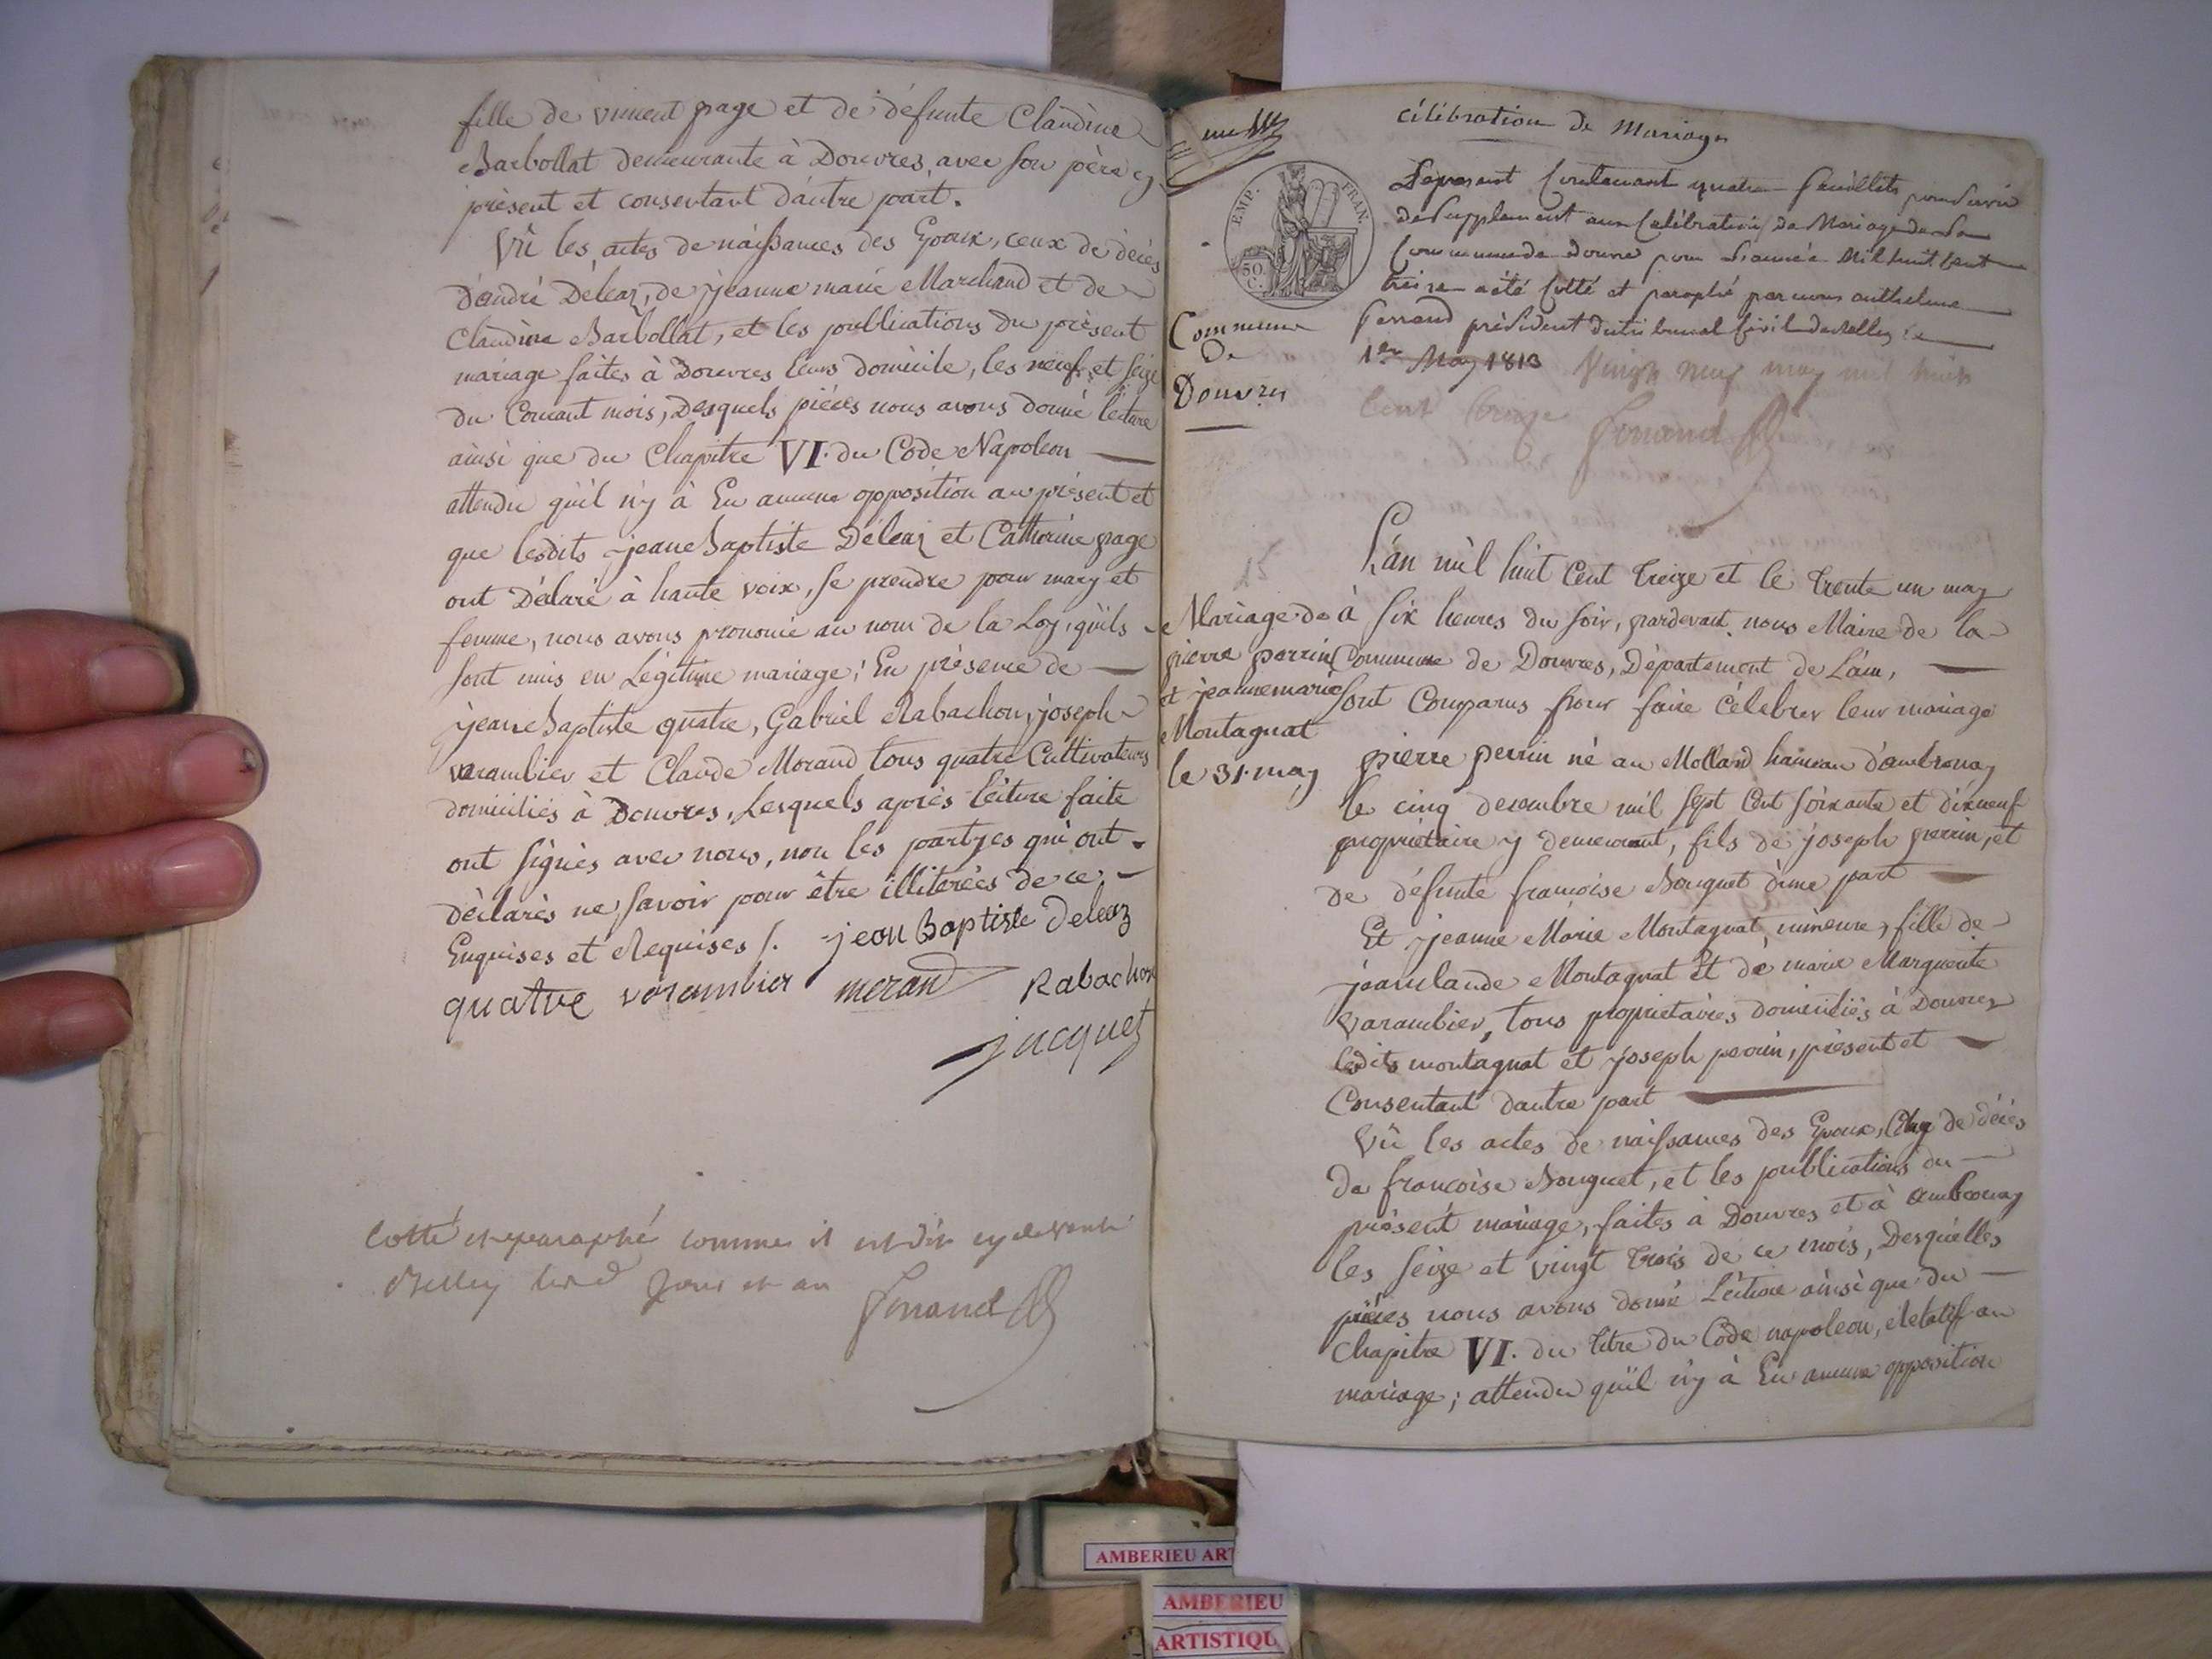 fille de vincent page et de défunte Claudine
Barbollat demeurante à Douvres, avec son père cy
présent et consentant d'autre part.
Vû les actes de naissances des Epoux, ceux de décès
d'andré Déléaz, de jeanne marie Marchand et de
Claudine Barbollat, et les publications du présent
mariage faites à Douvres leurs domicile, les neuf et seize
du Courant mois, Desquels pièces nous avons donné lecture
ainsi que du Chapitre VI. du Code Napoleon
attendu qu'il n'y à Eu aucune opposition au présent et
que lesdits jean Baptiste Déléaz et Catherine page
ont Déclaré à haute voix, se prendre pour mary et
femme, nous avons prononcé au nom de la Loy, qu'ils
sont unis en Légitime mariage; En présence de
jean Baptiste quatre, Gabriel Rabachon, joseph
varambier et Claude Morand tous quatre Cultivateurs
domiciliés à Douvres, Lesquels après lécture faite
ont signés avec nous, non les partyes qui ont
déclarés ne savoir pour être illiterées de ce
Enquises et Requises /. jean Baptiste deleaz
quatre varambier moran Rabachon
jacquet
Cotté et paraphé comme il est dit cy devant
Belley lesd jour et an Ferrand
célébration de Mariage
EMP. FRAN.
50. C.
Commune
De
Douvres
Le present Contenant quatre feuillets pour servir
de Supplement aux Celébration de Mariage de la
Commune de douvre pour L'année Mil huit Cent
treize a été Cotté et paraphé par nous anthelme
Ferrand président du tribunal Civil de Belley Le
1er May 1813 Vingt neuf may mil huit
Cent treize Ferrand
15
Mariage de
pierre perrin
et jeanne marie
Montagnat
le 31. may
L'an mil huit Cent treize et le trente un may
à six heures du soir, pardevant nous Maire de la
Commune de Douvres, Département de L'ain,
sont Comparus pour faire célébrer leur mariage
pierre perrin né au Mollard hameau d'ambronay
le cinq decembre mil sept Cent soixante et dix neuf
propriétaire y demeurant, fils de joseph perrin, et
de défunte françoise Bouquet d'une part
Et jeanne Marie Montagnat, mineure, fille de
jean claude Montagnat et de marie Marguerite
Varambier, tous proprietaires domiciliés à Douvres
lesdits montagnat et joseph perrin, présent et
Consentant d'autre part
Vû les actes de naissances des Epoux, Celuy de décès
de françoise Bouquet, et les publications du
présent mariage, faites à Douvres et à ambronay
les seize et vingt trois de ce mois, Desquelles
pièces nous avons donné Lécture ainsi que du
Chapitre VI. du titre du Code napoleon, Relatif au
mariage; attendu qu'il n'y à Eu aucune opposition
AMBERIEU ART
AMBERIEU
ARTISTIQU